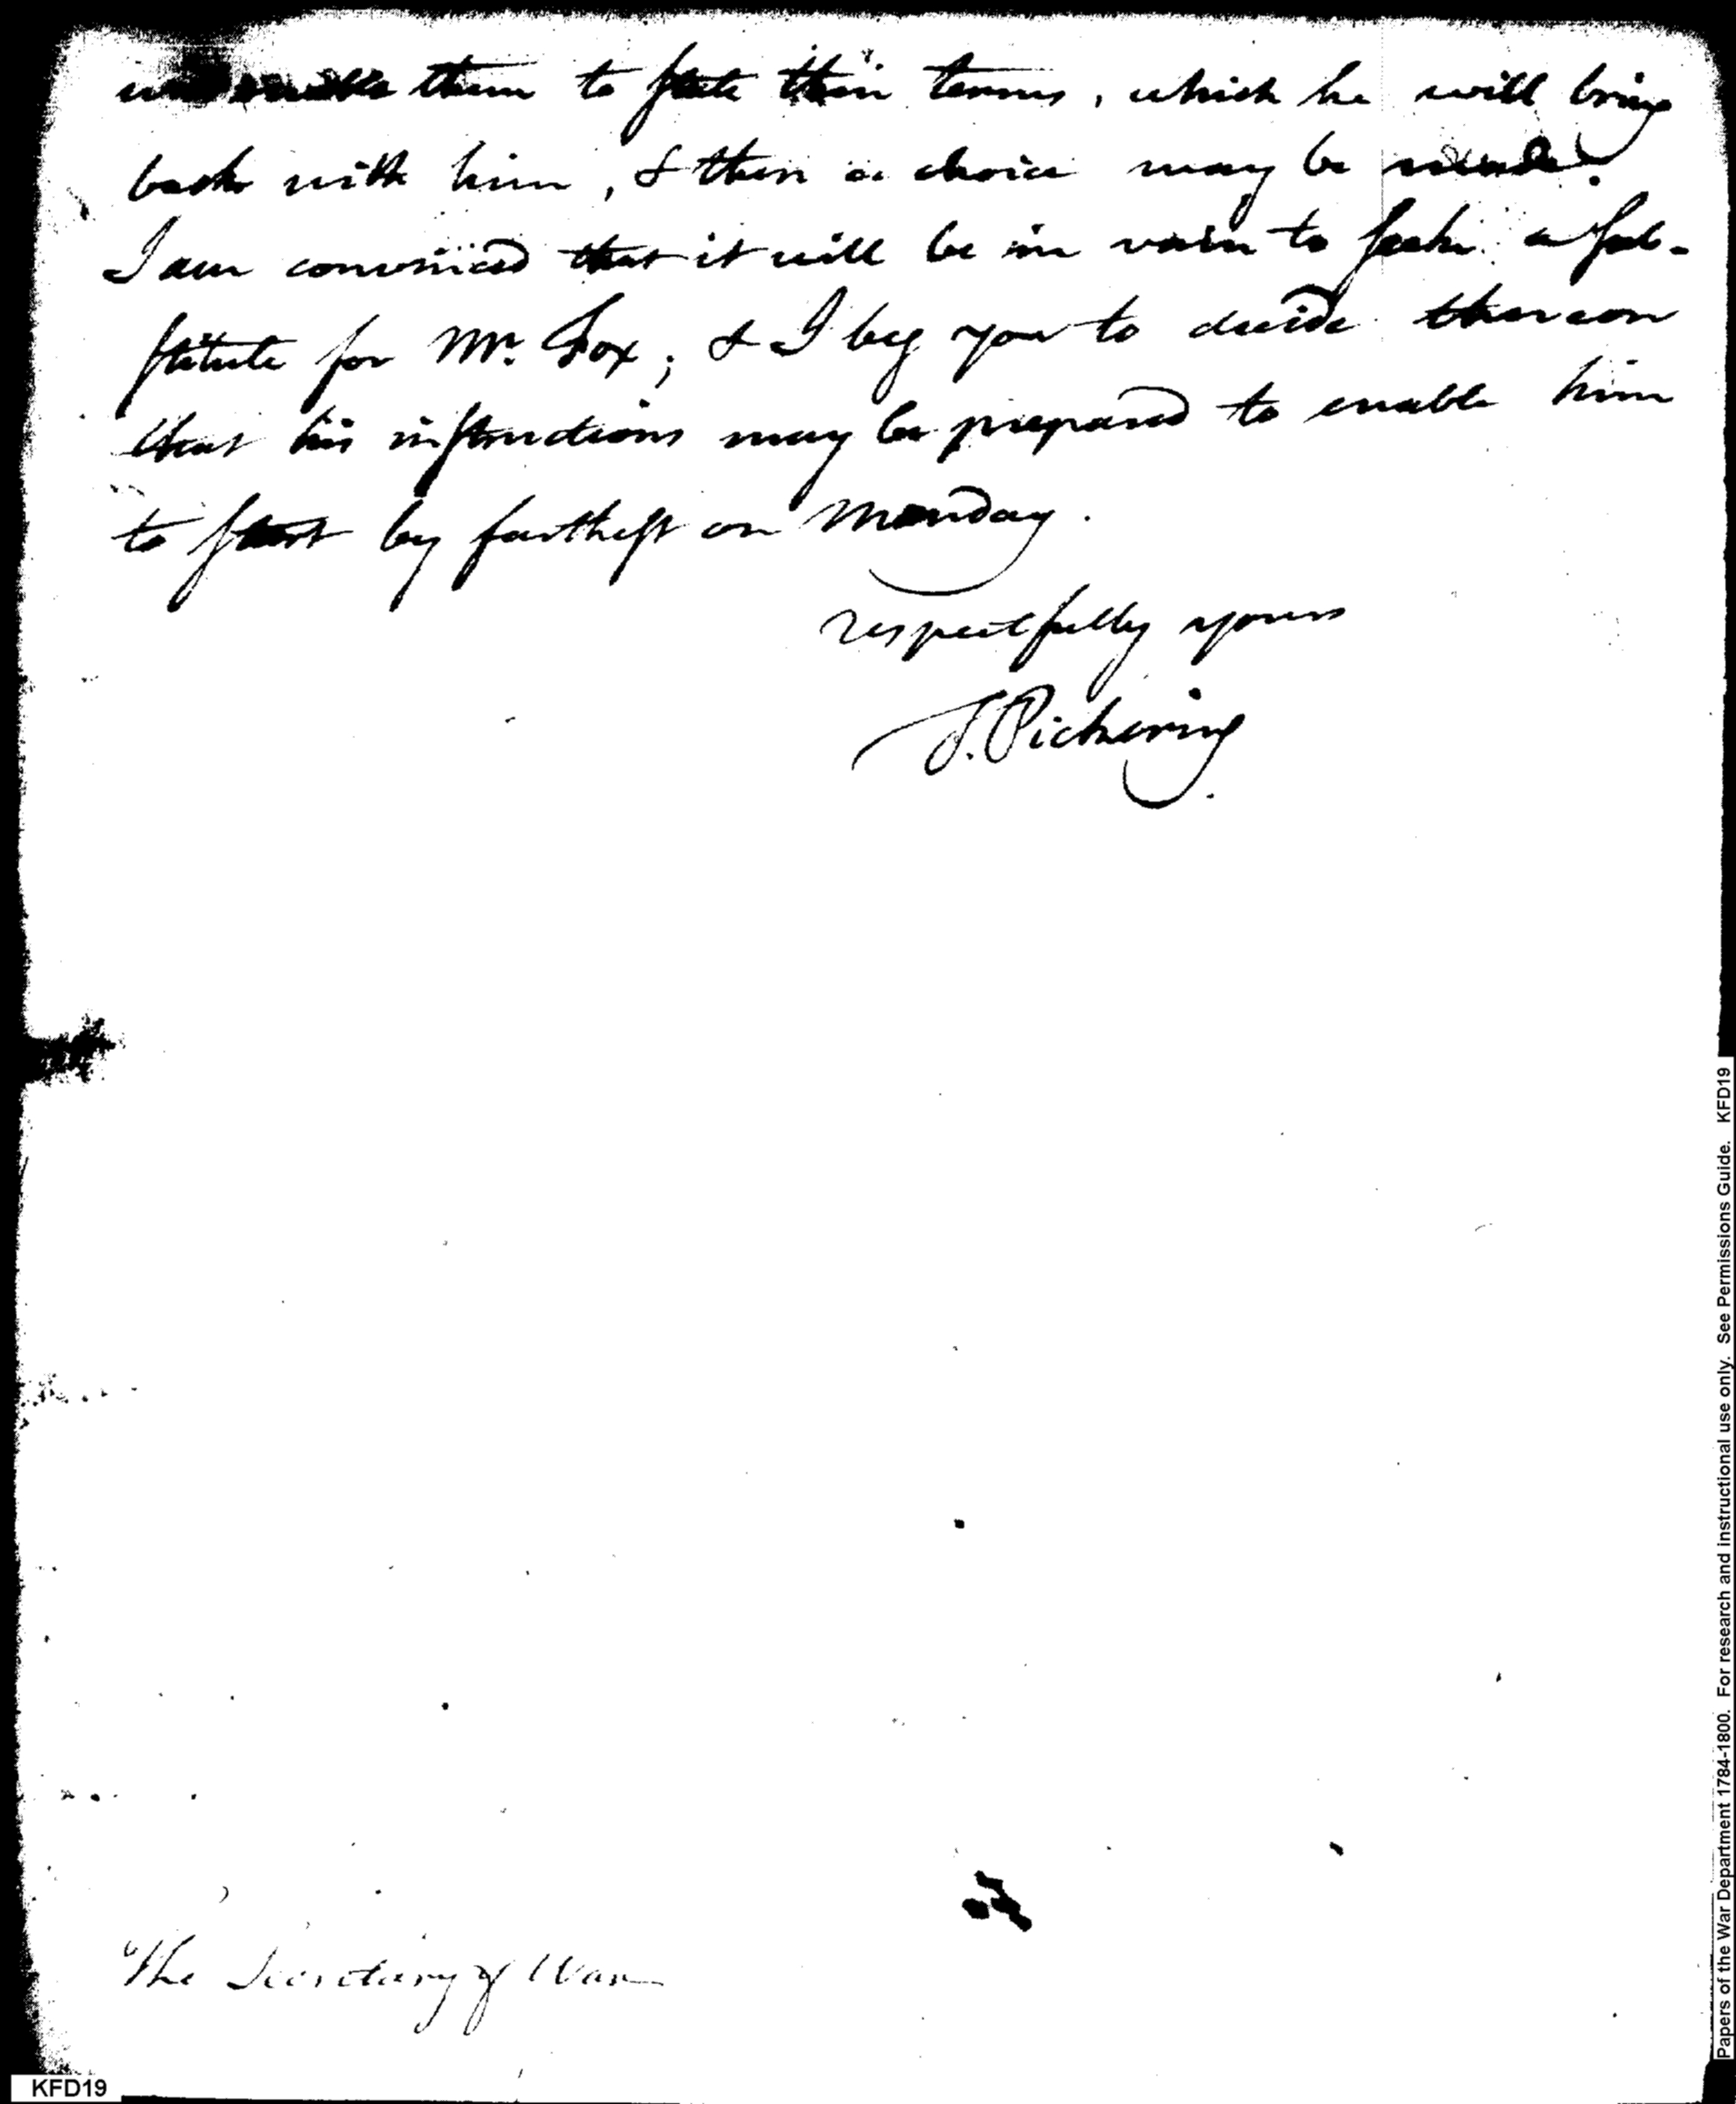 enable them to state their terms, which he will bring
back with him, & then a choice may be made.
I am convinced that it will be in vain to seek a sub-
stitute for Mr. Fox; & I beg you to decide thereon
that his instructions may be prepared to enable him
to start by farthest on Monday.
respectfully yours
T. Pickering
The Secretary of War
KFD19
Papers of the War Department 1784-1800. For research and instructional use only. See Permissions Guide. KFD19